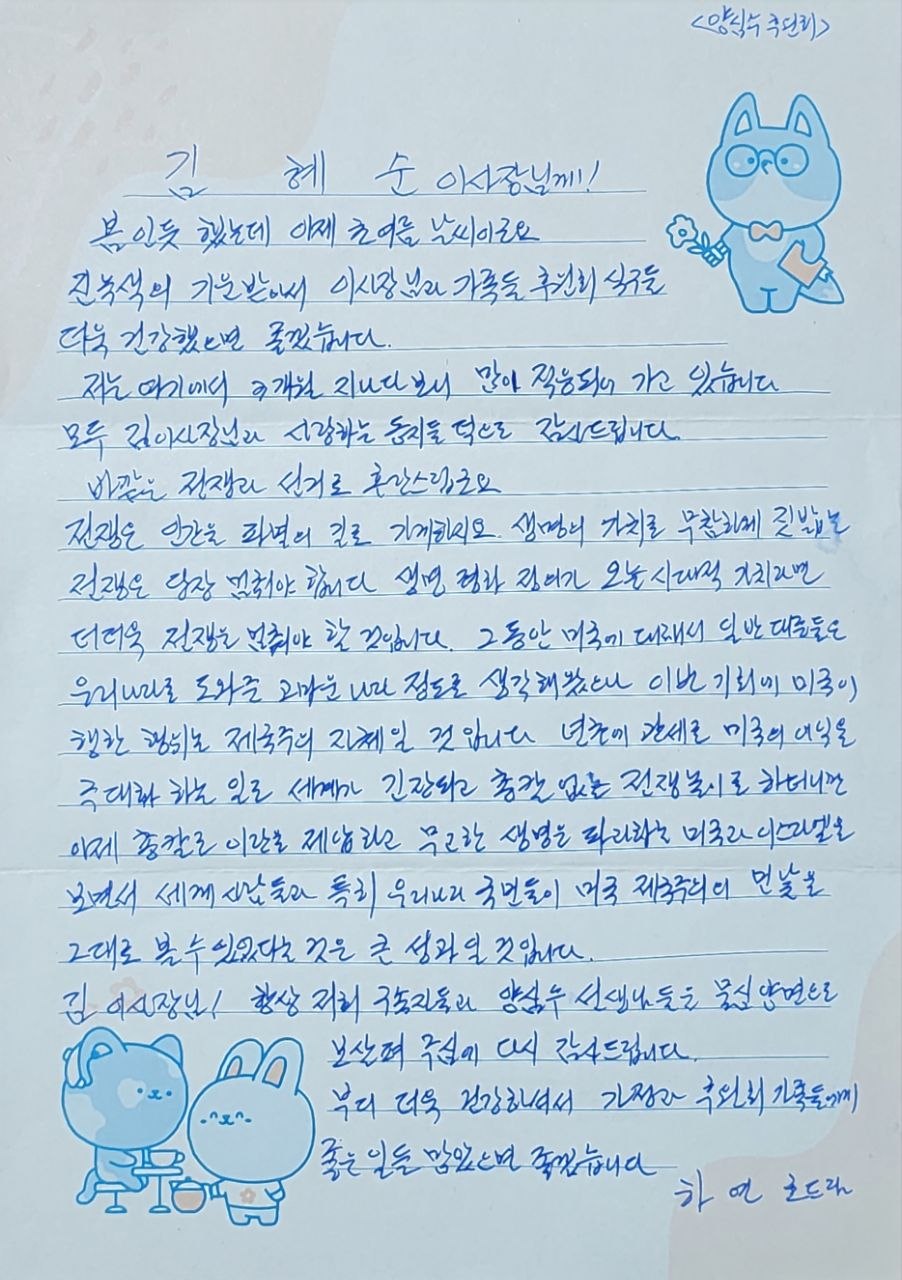 <양심수후원회>
김 혜 순 이사장님께!
봄인듯 했는데 이제 초여름 날씨이군요
진녹색의 기운받아서 이사장님과 가족들 후원회 식구들
더욱 건강했으면 좋겠습니다.
저는 여기에서 9개월 지나다보니 많이 적응되어 가고 있습니다
모두 김이사장님과 사랑하는 동지들 덕으로 감사드립니다.
바깥은 전쟁과 선거로 혼란스럽군요
전쟁은 인간을 파멸의 길로 가게하지요. 생명의 가치를 무참하게 짓밟는
전쟁은 당장 멈춰야 합니다 생명 평화 정의가 오늘 시대적 가치라면
더더욱 전쟁을 멈춰야 할 것입니다. 그동안 미국에 대해서 일반대중들은
우리나라를 도와준 고마운 나라 정도로 생각해왔으나 이번 기회에 미국이
행한 행위는 제국주의 자체일 것입니다 년초에 관세로 미국의 이익을
극대화 하는 일로 세계가 긴장되고 총칼 없는 전쟁놀이로 하더니만
이제 총칼로 이란을 제압하고 무고한 생명을 파괴하는 미국과 이스라엘을
보면서 세계 사람들과 특히 우리나라 국민들이 미국 제국주의의 민낯을
그대로 볼 수 있었다는 것은 큰 성과일 것입니다.
김 이사장님! 항상 저희 구속자들과 양심수 선생님들을 물심양면으로
보살펴 주심에 다시 감사드립니다.
부디 더욱 건강하셔서 가정과 후원회 가족들에게
좋은 일들 많았으면 좋겠습니다
하 연 호드림